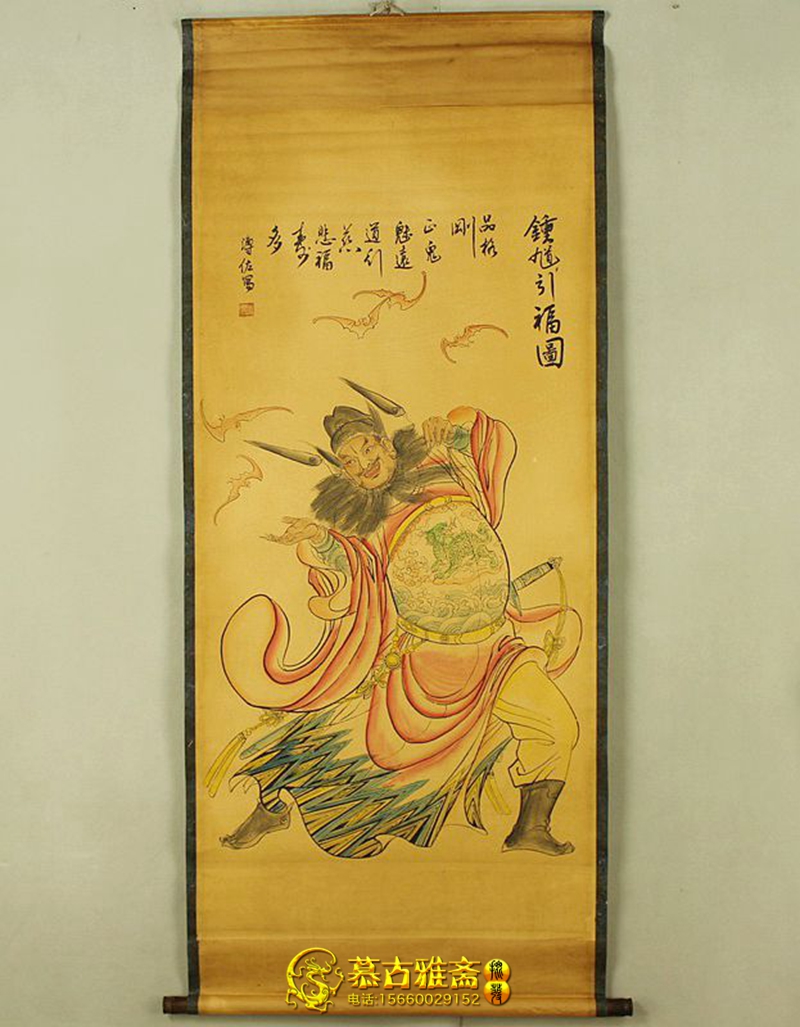 鍾馗引福圖
品格
剛
正鬼
魅遠
道行
慈
悲福
壽
多
溥佐寫
慕古雅斋
电话:15660029152